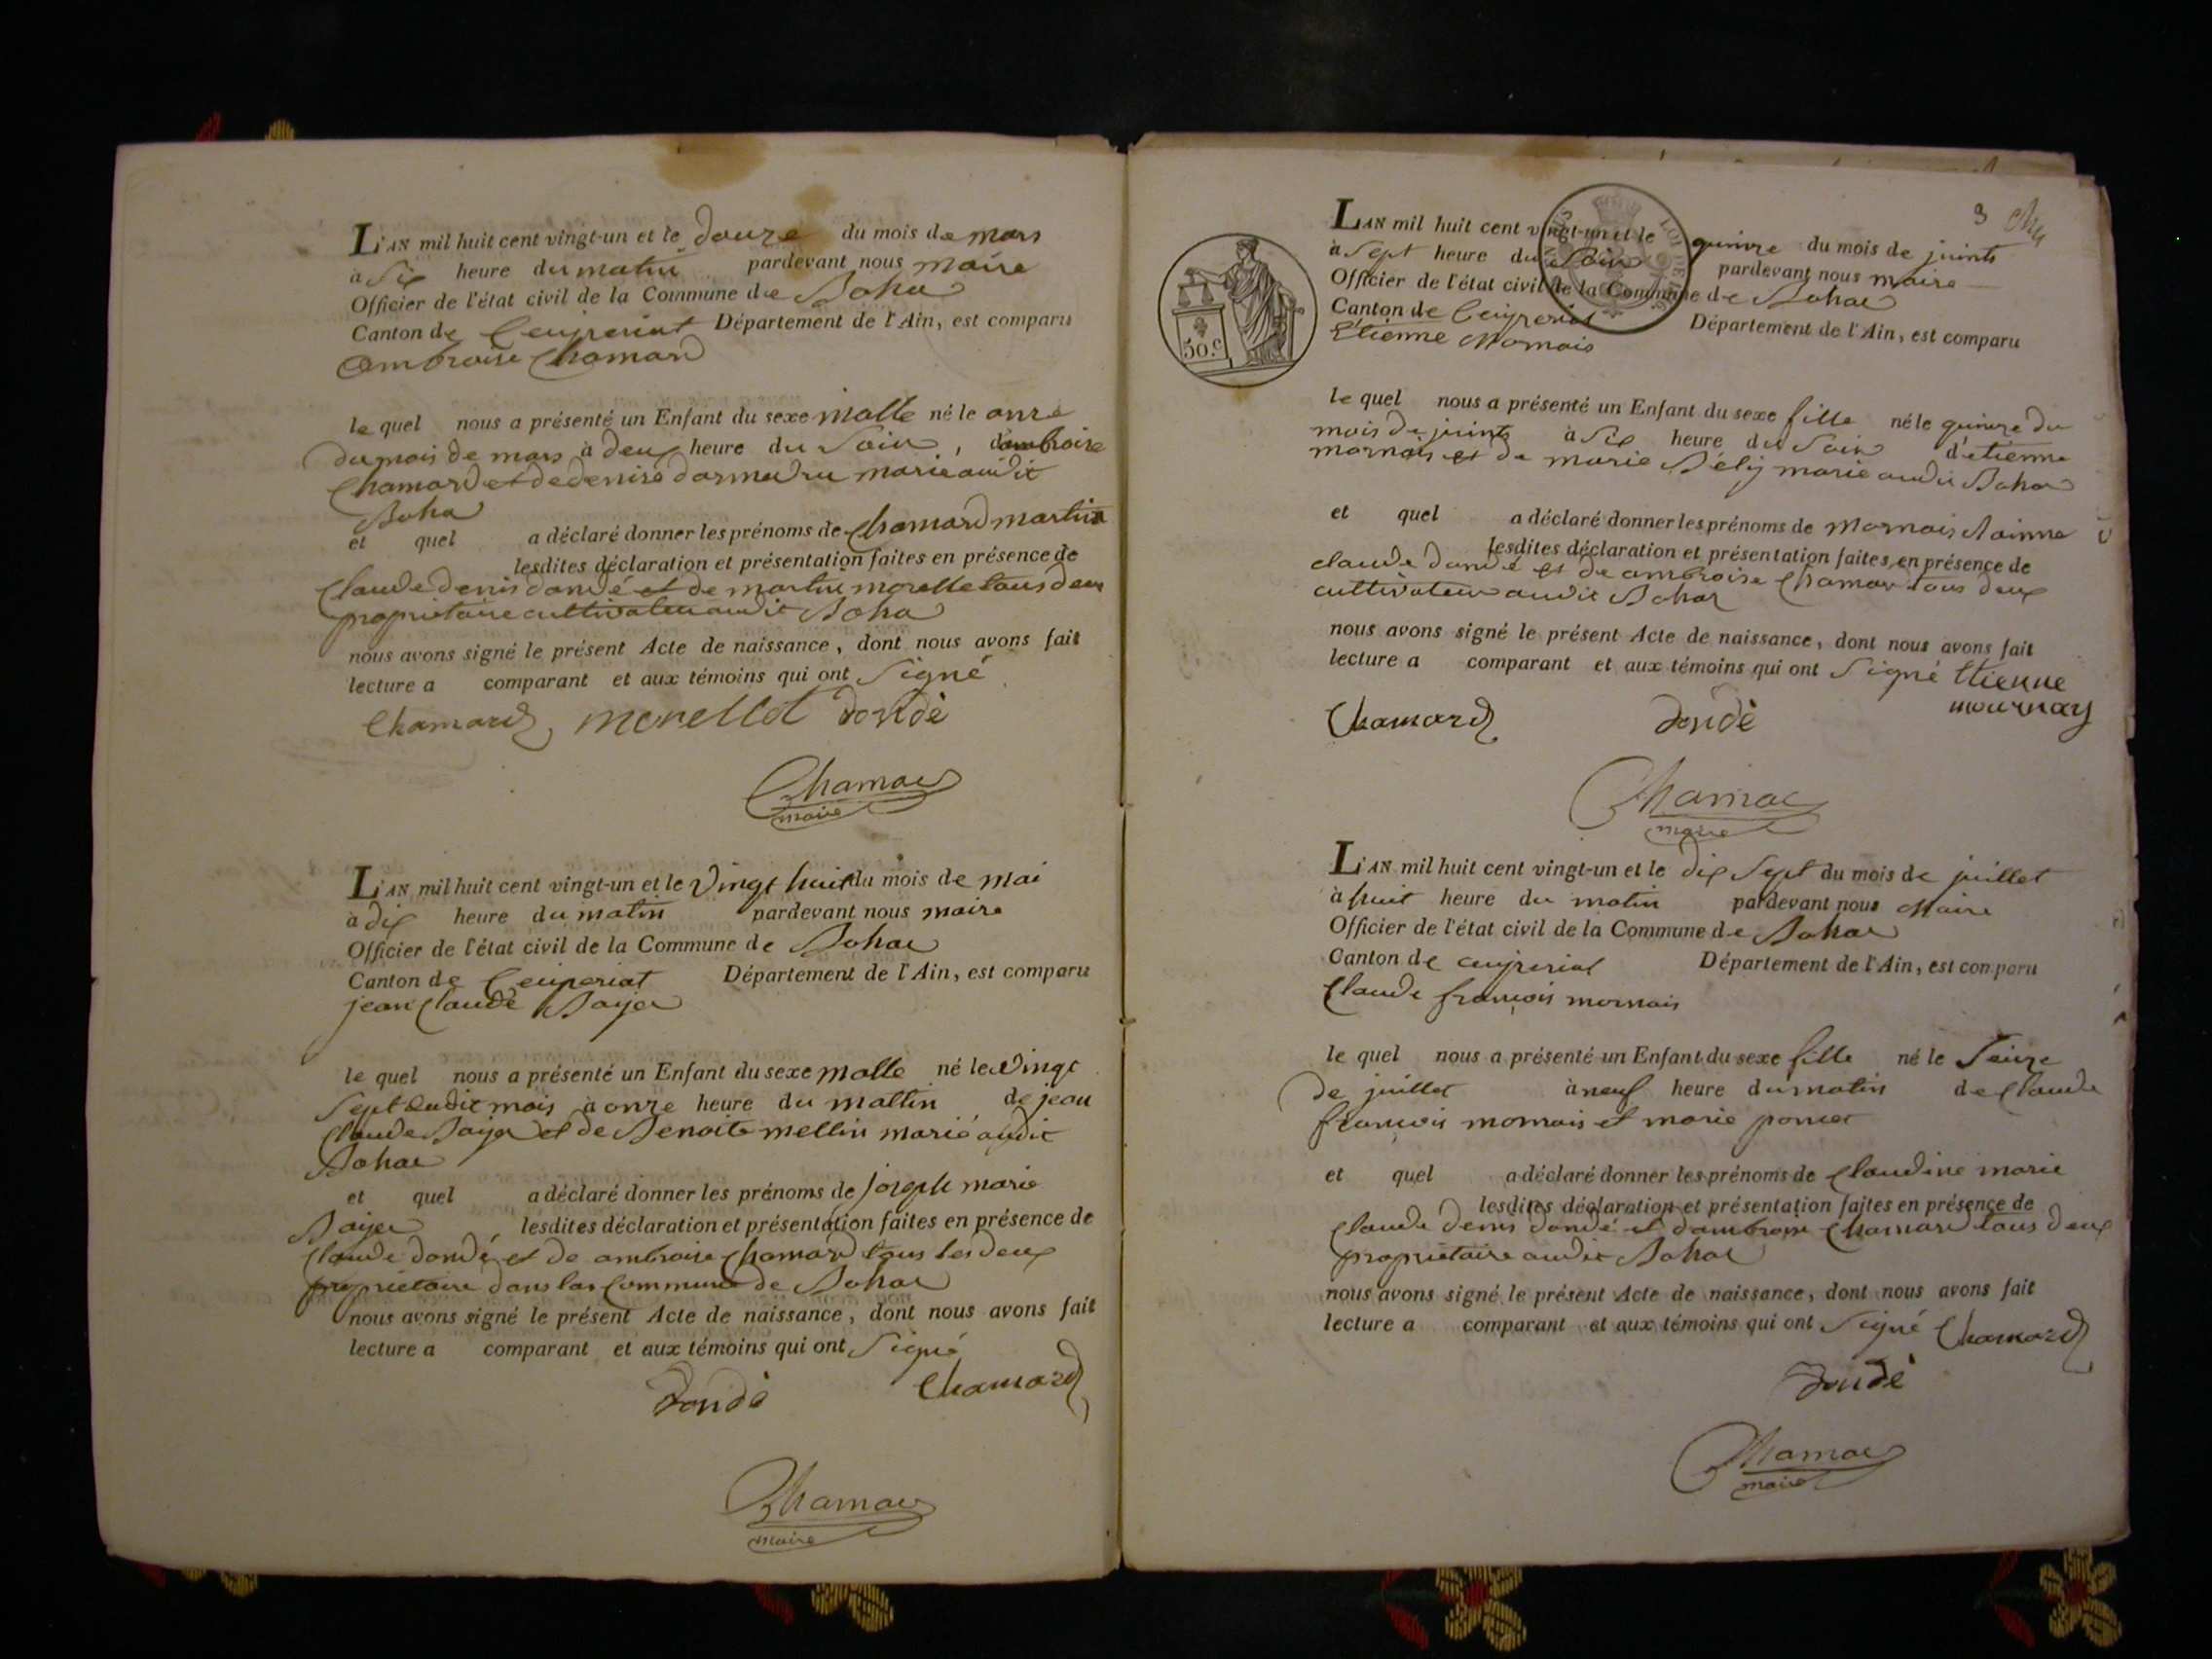 L'AN mil huit cent vingt-un et le douze du mois de mars
à Six heure du matin pardevant nous maire
Officier de l'état civil de la Commune de Bohas
Canton de Ceyzeriat Département de l'Ain, est comparu
ambroise Chamard
le quel nous a présenté un Enfant du sexe malle né le onze
du mois de mars à deux heure du Soir, d'ambroise
Chamard et de denise marié audit
Boha
et quel a déclaré donner les prénoms de Chamard martin
lesdites déclaration et présentation faites en présence de
Claude denis dondé et de martin morelle tous deux
propriétaire cultivateur audit Boha
nous avons signé le présent Acte de naissance, dont nous avons fait
lecture a comparant et aux témoins qui ont Signé
Chamard morellet dondè
Chamard
maire
L'AN mil huit cent vingt-un et le vingt huit du mois de mai
à dix heure du matin pardevant nous maire
Officier de l'état civil de la Commune de Bohas
Canton de Ceyzeriat Département de l'Ain, est comparu
jean Claude Boyer
le quel nous a présenté un Enfant du sexe malle né le vingt
Sept dudit mois à onze heure du mattin de jean
Claude Boyer et de Benoite mellin marié audit
Bohas
et quel a déclaré donner les prénoms de joseph marie
Boyer lesdites déclaration et présentation faites en présence de
Claude dondé et de ambroise Chamard tous les deux
propriétaire dans la Commune de Bohas
nous avons signé le présent Acte de naissance, dont nous avons fait
lecture a comparant et aux témoins qui ont Signé
Dondè Chamard
Chamard
maire
3
50.c
L'AN mil huit cent vingt-un et le quinze du mois de juints
à Sept heure du Soir pardevant nous maire
Officier de l'état civil de la Commune de Bohas
Canton de Ceyzeriat Département de l'Ain, est comparu
Etienne Mornais
le quel nous a présenté un Enfant du sexe fille né le quinze du
mois de juints à Six heure du Soir d'étienne
mornais et de marie Bély marié audit Bohas
et quel a déclaré donner les prénoms de mornais
lesdites déclaration et présentation faites en présence de
claude dondé et de ambroise Chamard tous deux
cultivateur audit Bohas
nous avons signé le présent Acte de naissance, dont nous avons fait
lecture a comparant et aux témoins qui ont Signé Etienne
mournay
Chamard dondè
Chamard
maire
L'AN mil huit cent vingt-un et le dix Sept du mois de juillet
à huit heure du matin pardevant nous Maire
Officier de l'état civil de la Commune de Bohas
Canton de ceyzeriat Département de l'Ain, est comparu
Claude françois mornais
le quel nous a présenté un Enfant du sexe fille né le Seize
de juillet à neuf heure du matin de Claude
françois mornais et marie poncet
et quel a déclaré donner les prénoms de Claudine marie
lesdites déclaration et présentation faites en présence de
Claude denis dondé et d'ambroise Chamard tous deux
propriétaire audit Bohas
nous avons signé le présent Acte de naissance, dont nous avons fait
lecture a comparant et aux témoins qui ont Signé Chamard
Dondè
Chamard
maire